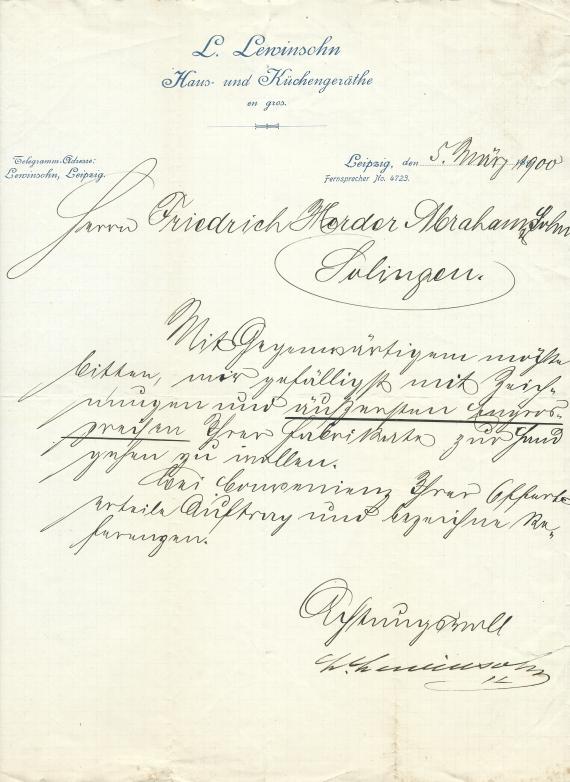 L. Lewinsohn
Haus- und Küchengeräthe
en gros.
Telegramm-Adresse:
Lewinsohn, Leipzig.
Leipzig, den 5. März 1900
Fernsprecher No. 4723.
Herrn Friedrich Herder Abraham Sohn
Solingen.
Mit Gegenwärtigem möchte
bitten, mir gefälligst mit Zeich-
nungen und äußersten Engros-
preisen Ihrer Fabrikate zur Hand
gehen zu wollen.
Bei Convenienz Ihrer Offerte
erteile Auftrag und bezeichne Re-
ferenzen.
Achtungsvoll
L. Lewinsohn